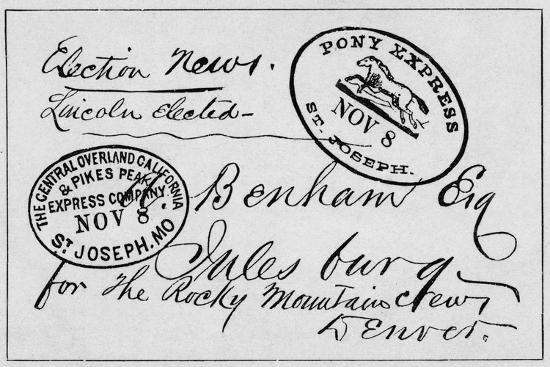 Election News.
Lincoln Elected-
PONY EXPRESS
NOV 8
ST. JOSEPH.
THE CENTRAL OVERLAND CALIFORNIA
& PIKES PEAK
EXPRESS COMPANY
NOV 8
ST JOSEPH. MO
Benham Esq
Julesburg
for The Rocky Mountain News
Denver.